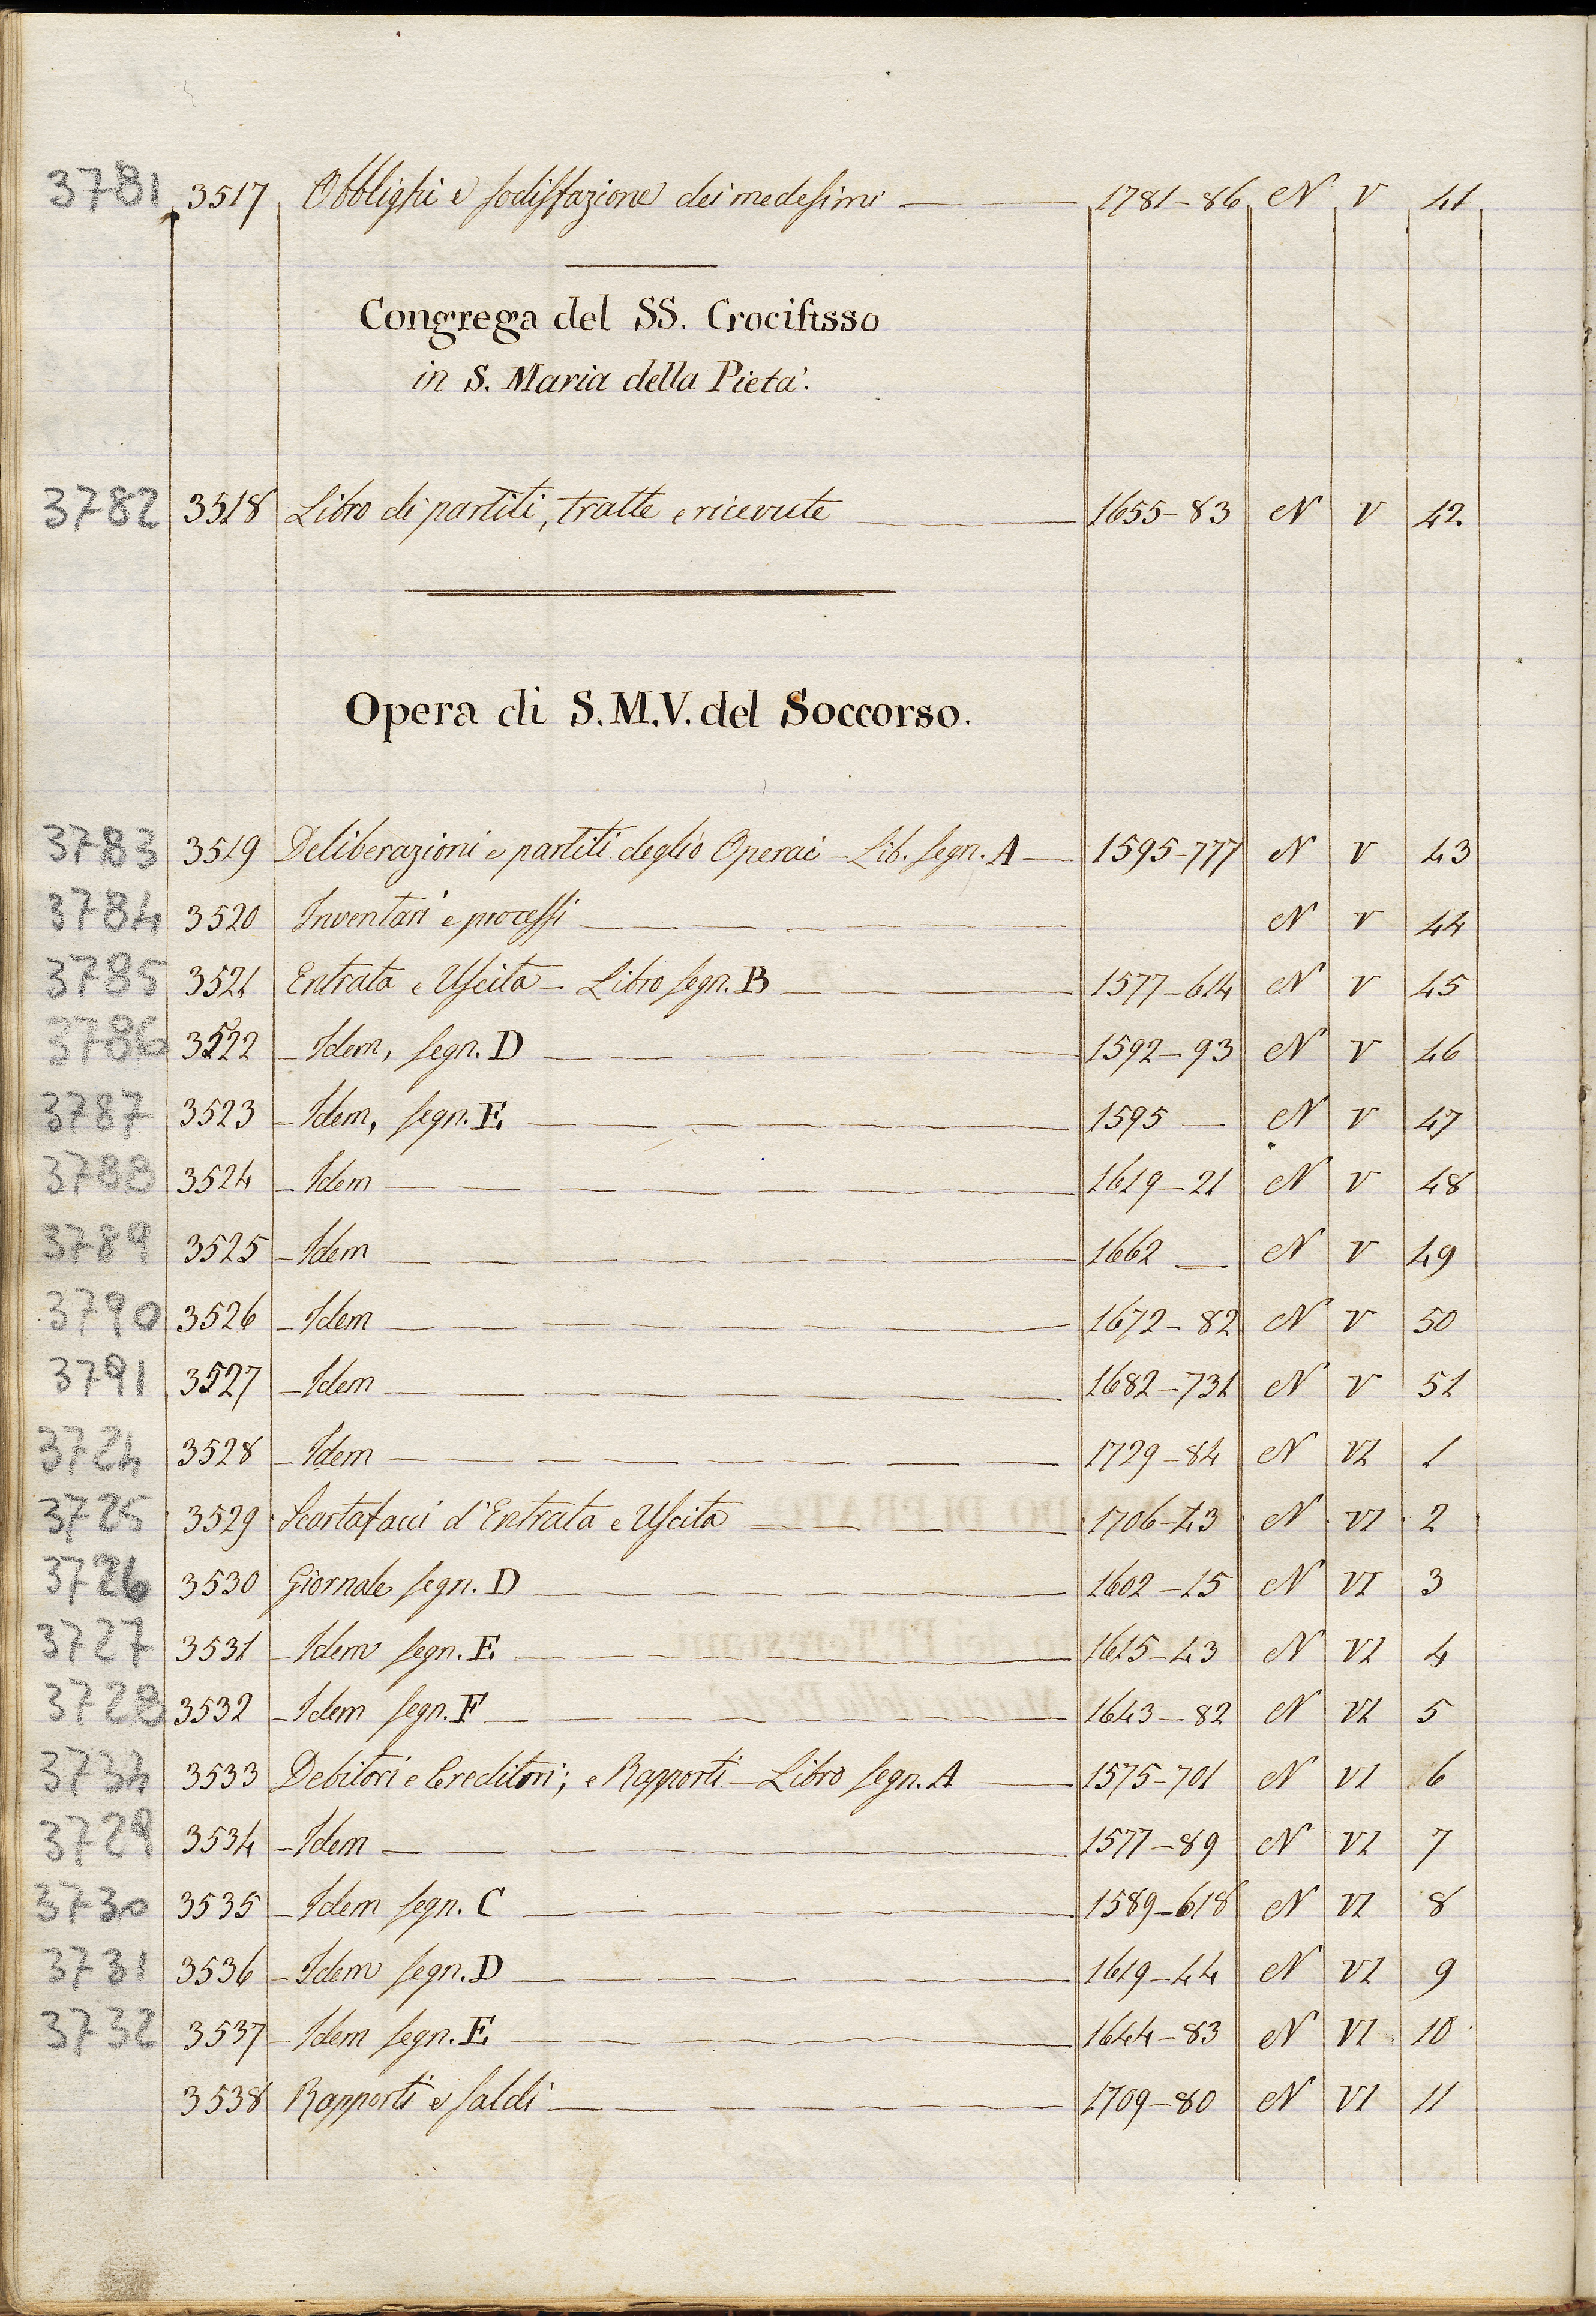 3781 3517 Obblighi e sodisfazione dei medesimi 1781-86 N V 41
Congrega del SS. Crocifisso
in S. Maria della Pietà.
3782 3518 Libro di partiti, tratte e ricevute 1655-83 N V 42
Opera di S.M.V. del Soccorso.
3783 3519 Deliberazioni e partiti degli Operai - Lib. segn. A 1595-777 N V 43
3784 3520 Inventari e processi N V 44
3785 3521 Entrata e Uscita - Libro segn. B 1577-614 N V 45
3786 3522 - Idem, segn. D 1592-93 N V 46
3787 3523 - Idem, segn. E 1595 - N V 47
3788 3524 - Idem 1619-21 N V 48
3789 3525 - Idem 1662 - N V 49
3790 3526 - Idem 1672-82 N V 50
3791 3527 - Idem 1682-731 N V 51
3724 3528 - Idem 1729-84 N VI 1
3725 3529 Scartafacci d'Entrata e Uscita 1706-43 N VI 2
3726 3530 Giornale segn. D 1602-15 N VI 3
3727 3531 - Idem segn. E 1615-43 N VI 4
3728 3532 - Idem segn. F 1643-82 N VI 5
3734 3533 Debitori e Creditori; e Rapporti - Libro segn. A 1575-701 N VI 6
3729 3534 - Idem 1577-89 N VI 7
3730 3535 - Idem segn. C 1589-618 N VI 8
3731 3536 - Idem segn. D 1619-44 N VI 9
3732 3537 - Idem segn. E 1644-83 N VI 10
3538 Rapporti e saldi 1709-80 N VI 11